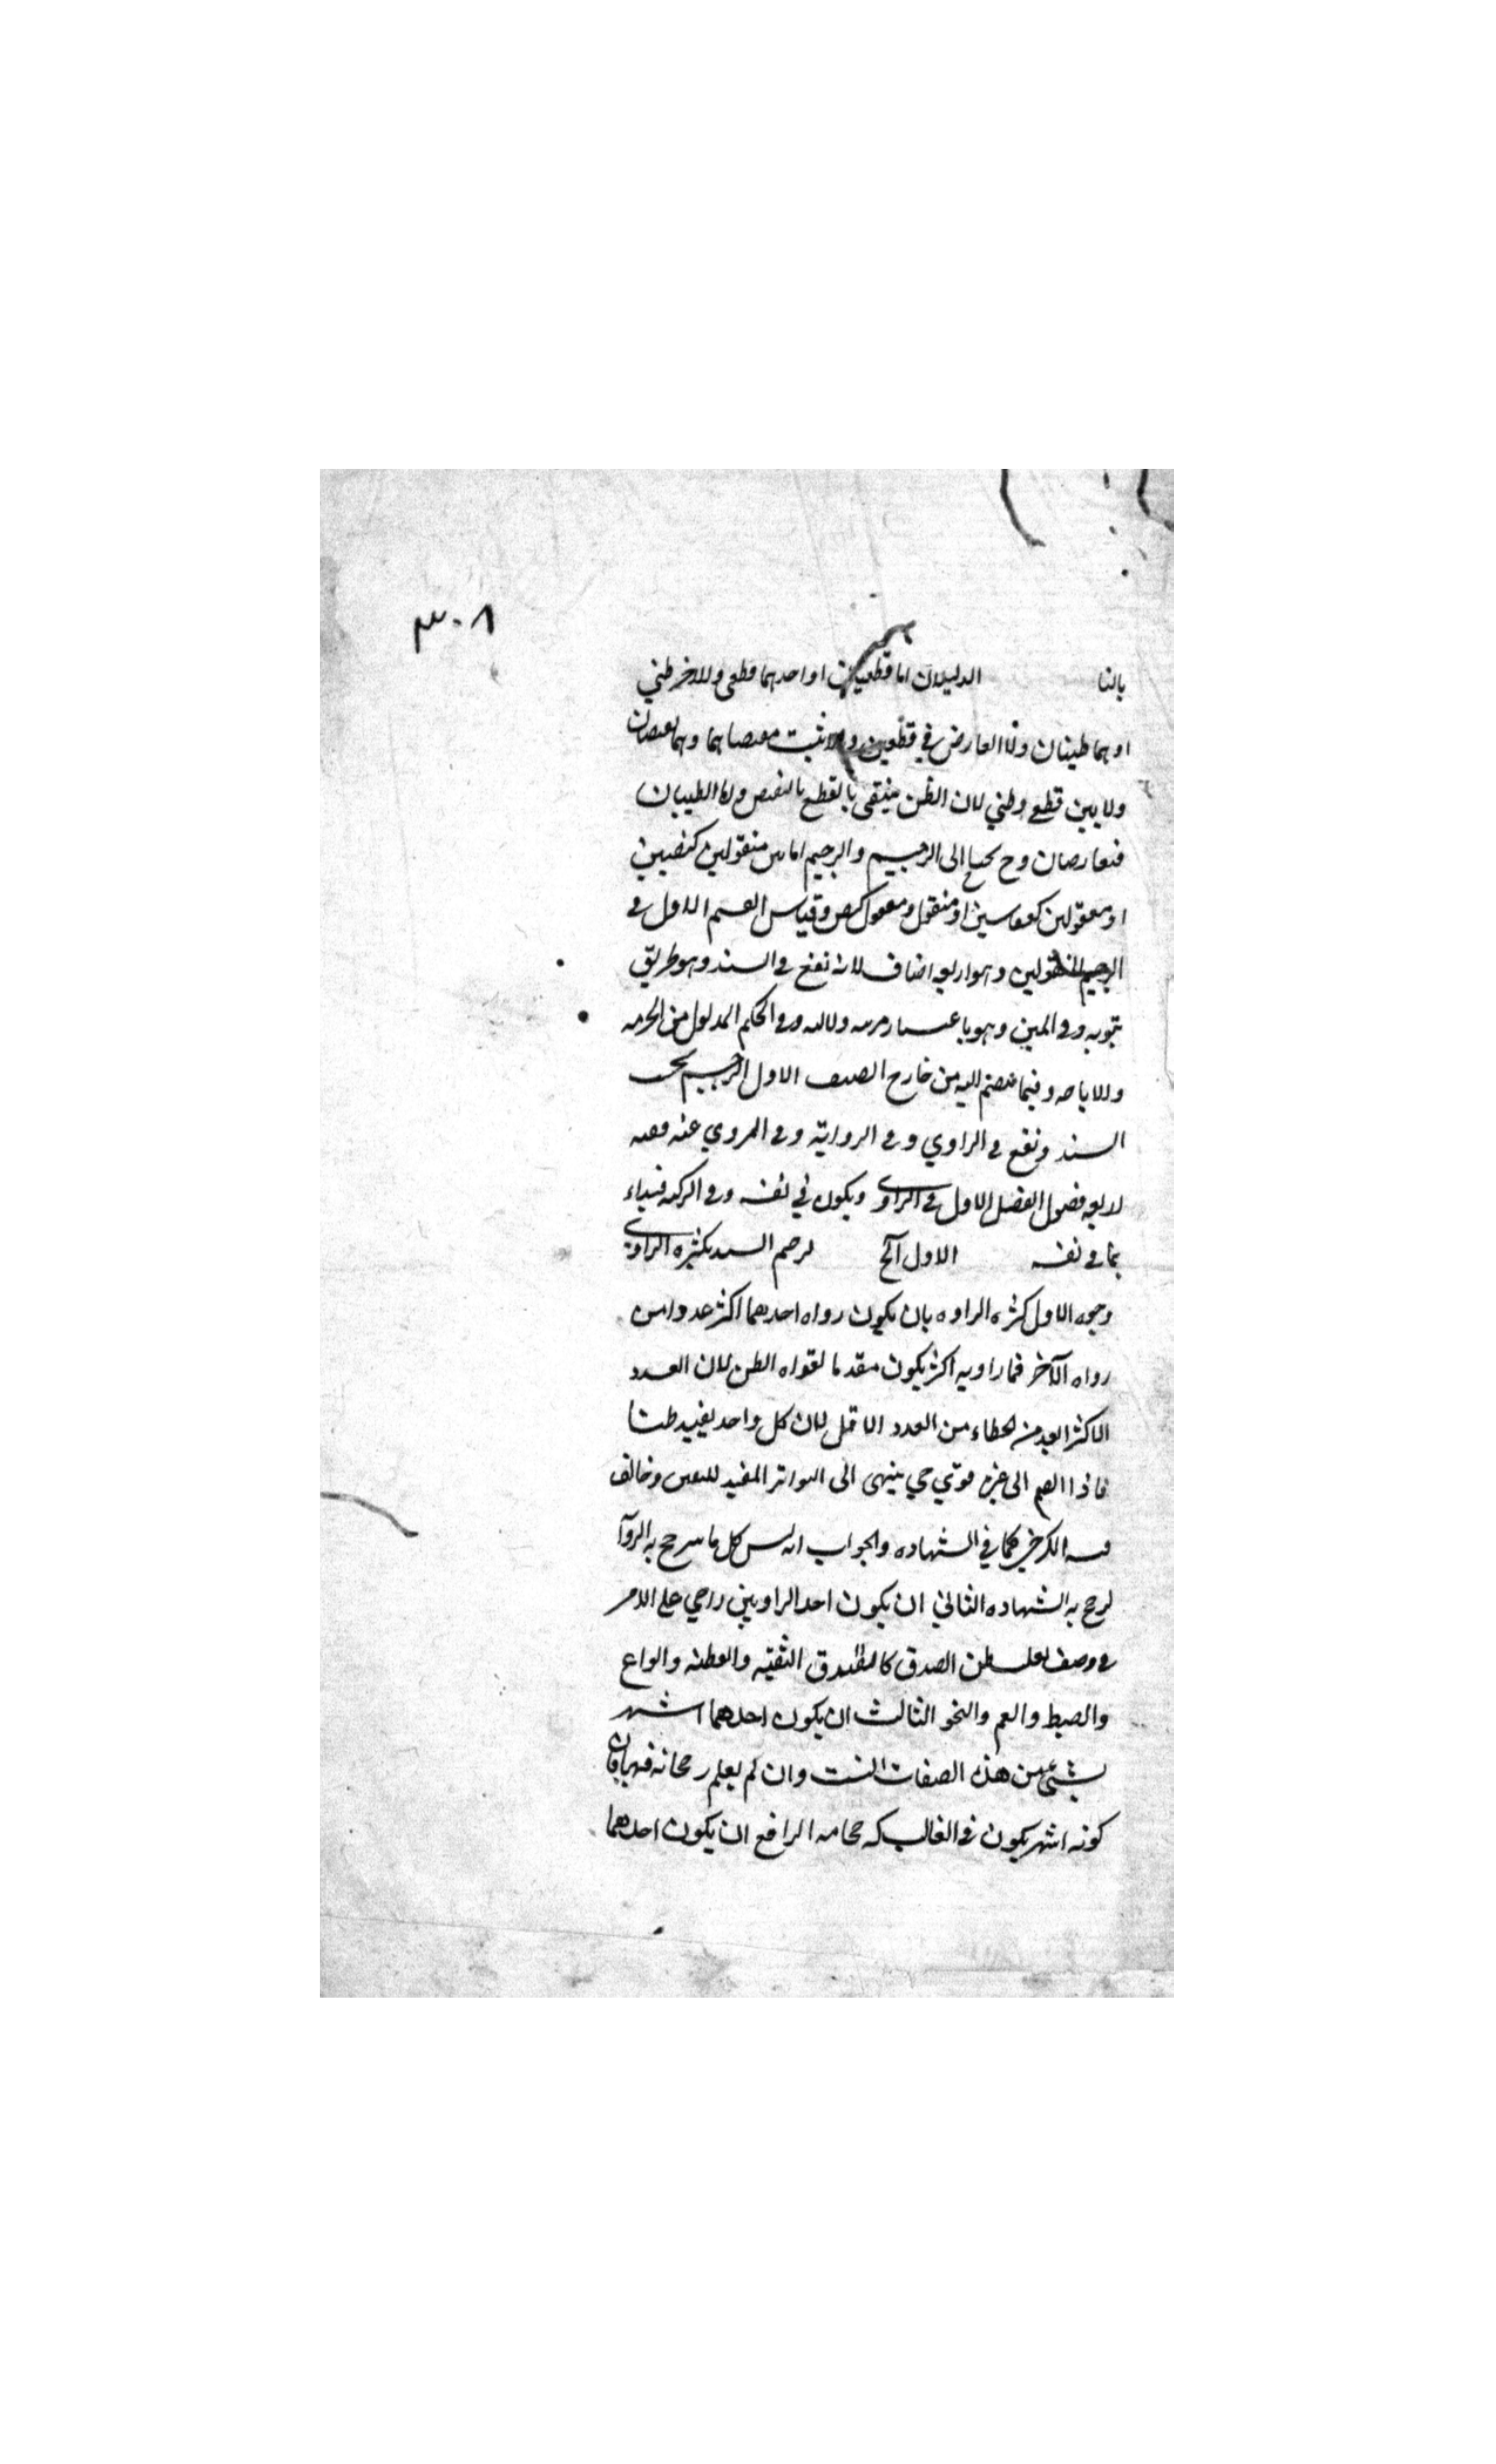 ٣٠٨
بالنا الدليلان اما قطعيان او احدهما قطعى والاخر ظني
او هما ظنيان ولا تعارض في قطعين والا ثبت مقتضاهما وهما نقيضان
ولا بين قطعي وظني لان الظن ينتفى بالقطع بالنقيض واما الظنيان
فتعارضان وح يحتاج الى الترجيح والترجيح اما بين منقولين كنصين
او معقولين كقياسين او منقول ومعقول كنص وقياس القسم الاول في
الترجيح المنقولين وهو اربعه اصناف لانه نقع في السند وهو طريق
ثبوته وفي المتن وهو باعتبار مرتبه دلالته وفي الحكم المدلول من الحرمه
والاباحه وفيما ينضم اليه من خارج الصنف الاول الترجيح بحسب
السند ونقع في الراوي وفى الروايه وفى المروي عنه ففيه
اربعه فصول الفصل الاول في الراوي ويكون في نفسه وفي التركيه فنبداء
بما في نفسه الاول الخ ترجيح السند بكثره الراوي
وجوه الاول كثره الراوه بان يكون رواه احدهما اكثر عددا من
رواه الآخر فما راويه اكثر يكون مقدما لقواه الظن لان العدد
الاكثر ابعد من الخطاء من العدد الاقل لان كل واحد يفيد ظنا
فاذا انضم الى غيره قوي حي ينتهى الى التواتر المفيد لليقين وخالف
فيه الكرخي كما في الشهاده والجواب انه ليس كل ما ترجح به الروآ
ترجح به الشهاده الثاني ان يكون احد الراويين راجي على الاخر
في وصف يغلب ظن الصدق كالثقه والفطنه والورع
والضبط والعلم والنحو الثالث ان يكون احدهما اشهر
بشئ من هذه الصفات الست وان لم يعلم رحجانه فيها فان
كونه اشهر يكون في الغالب لرحجانه الرابع ان يكون احدهما